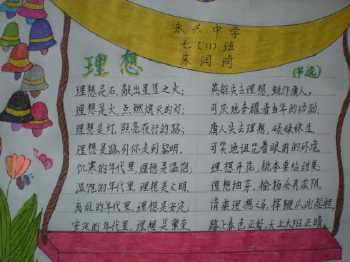 中学
七(11)班
理想
(节选)
理想是石,敲出星星之火;
理想是火,点燃熄灭的灯;
理想是灯,照亮夜行的路;
理想是路,引你走到黎明。
饥寒的年代里,理想是温饱;
温饱的年代里,理想是文明。
离乱的年代里,理想是安定;
安定的年代里,理想是繁荣。
英雄失去理想,蜕作庸人,
可厌地夸耀着当年的功勋;
庸人失去理想,碌碌终生,
可笑地诅咒着眼前的环境。
理想开花,桃李要结甜果;
理想抽芽,榆杨会有浓荫。
请乘理想之马,挥鞭从此起程,
路上春色正好,天上太阳正晴。